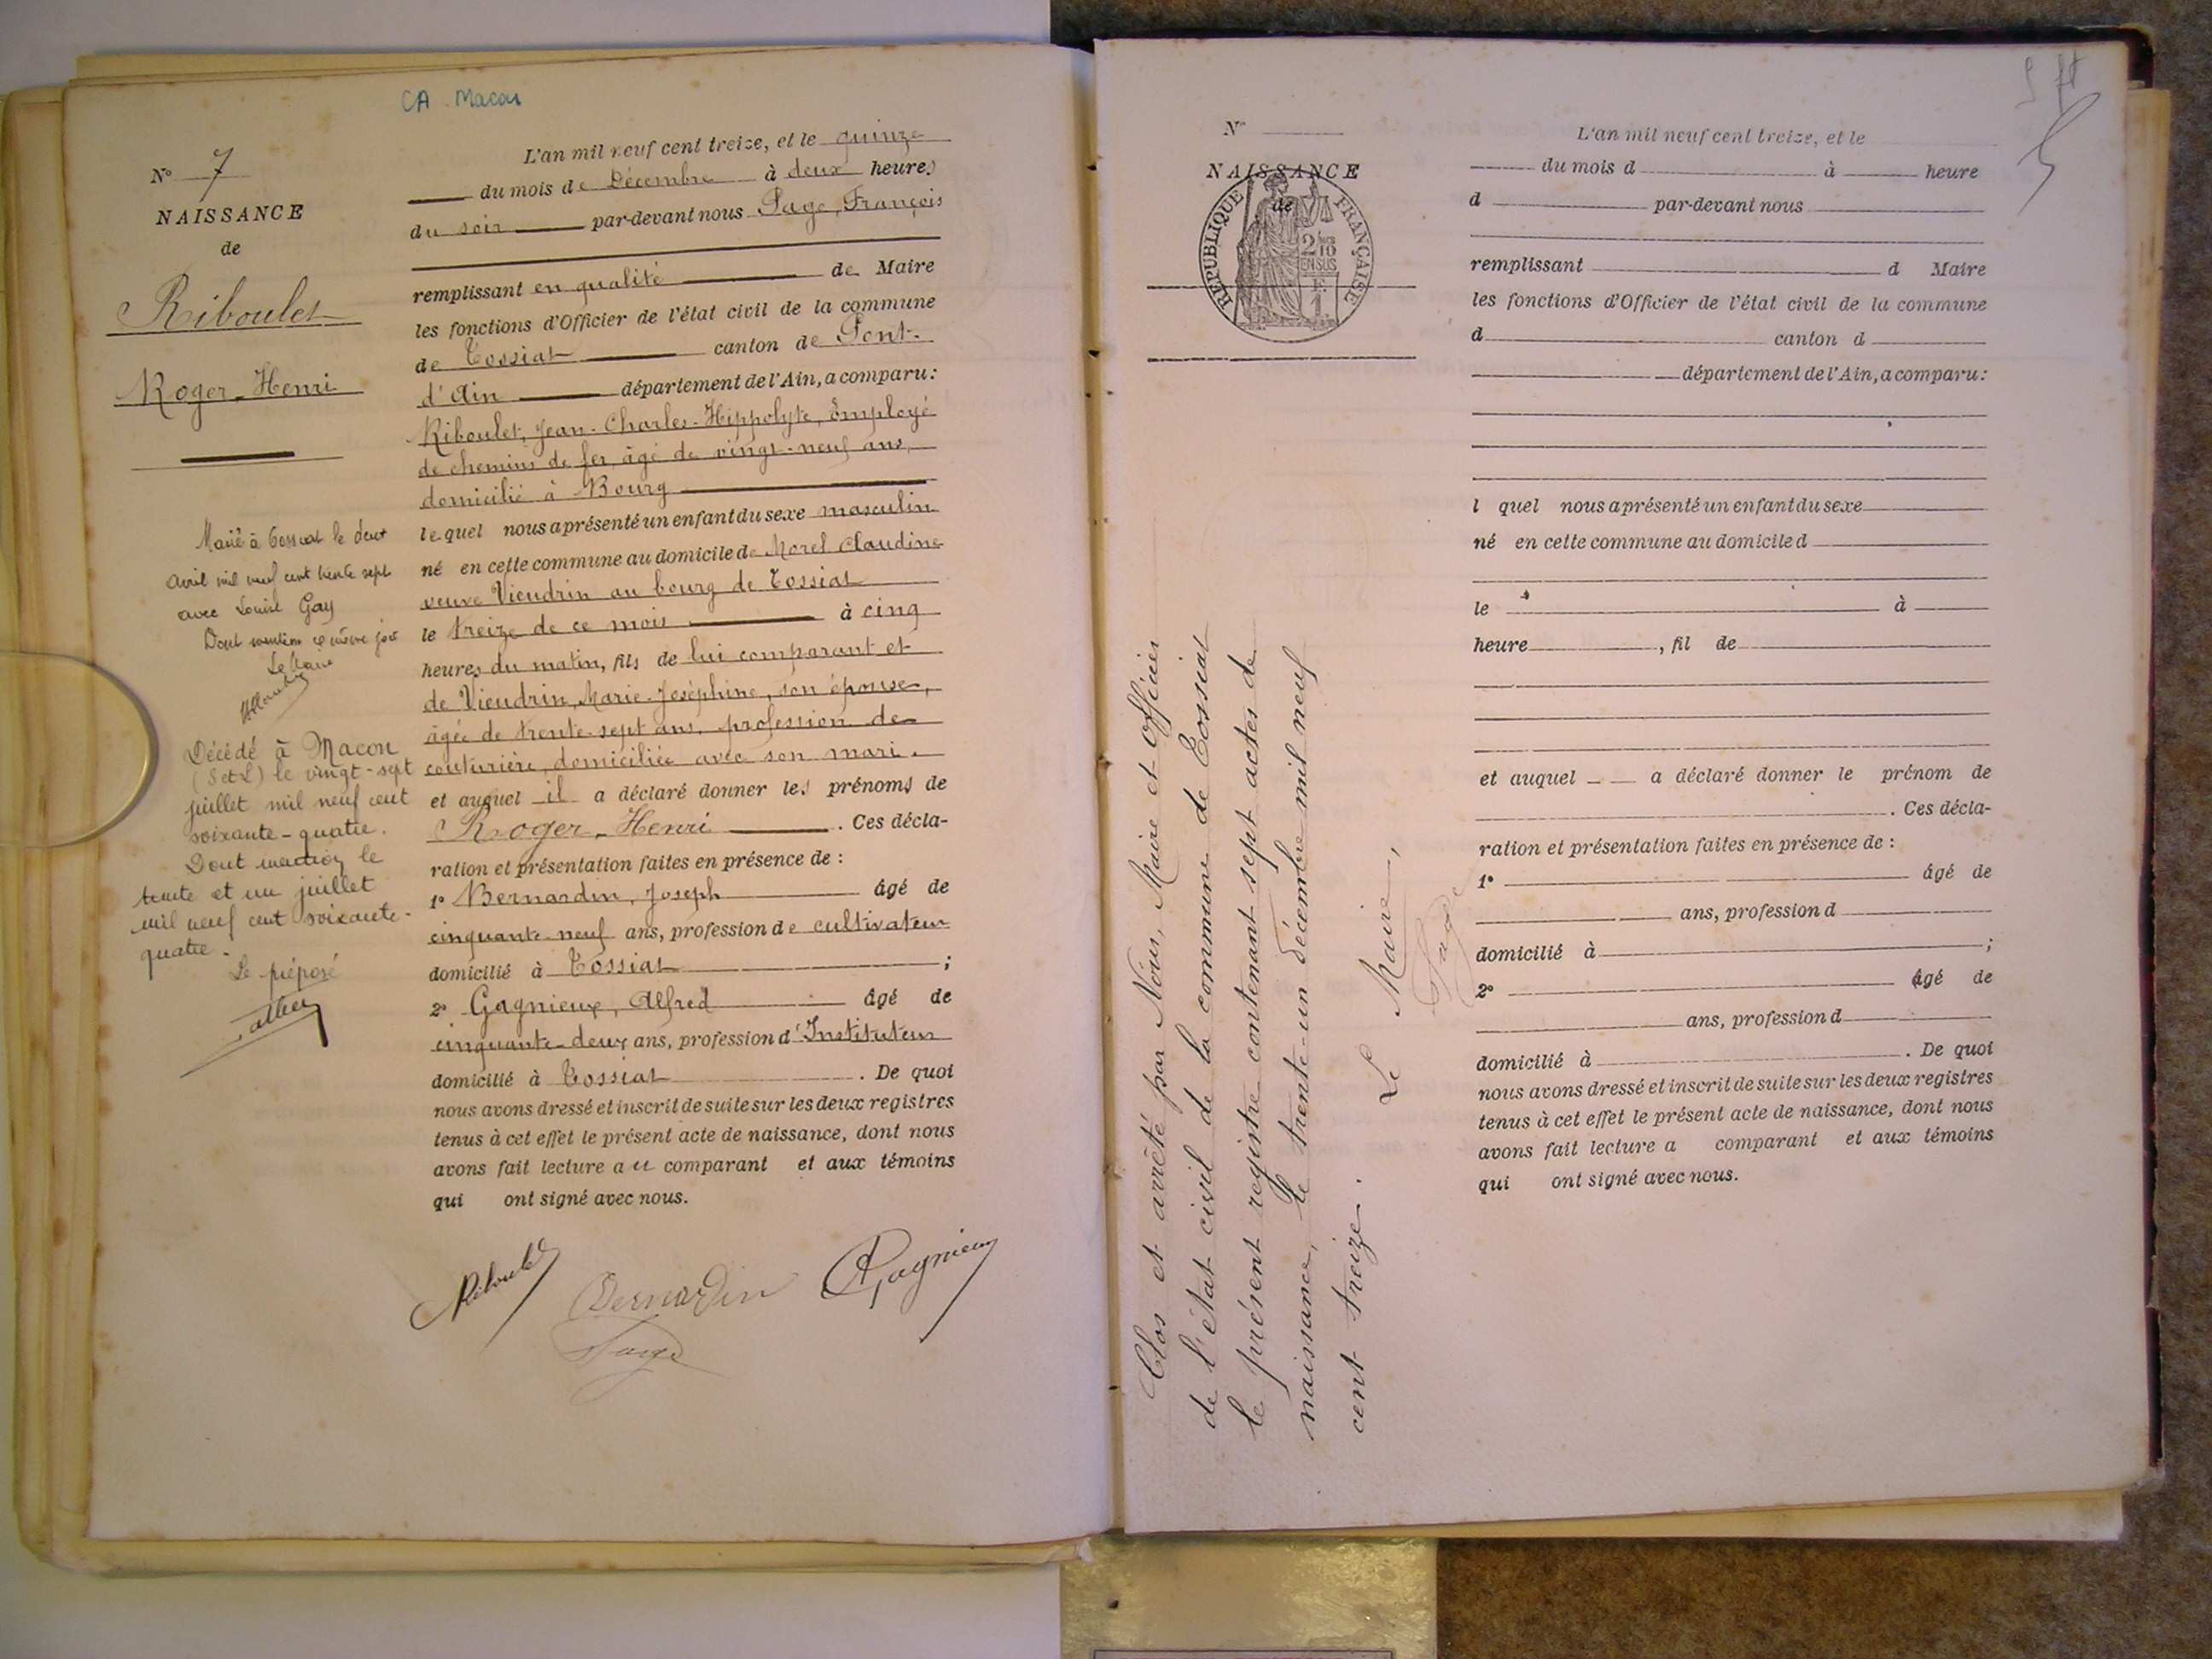 CA. Macon
N° 7
NAISSANCE
de
Riboulet
Roger-Henri
Marié à Tossiat le deux
avril mil neuf cent trente sept
avec Louise Gay
Dont mention ce même jour
Le Maire
Décédé à Macon
(S et L) le vingt-sept
juillet mil neuf cent
soixante-quatre.
Dont mention le
trente et un juillet
mil neuf cent soixante-
quatre.
Le préposé
L'an mil neuf cent treize, et le quinze
du mois de Décembre à deux heures
du soir par-devant nous Page, François
remplissant en qualité de Maire
les fonctions d'Officier de l'état civil de la commune
de Tossiat canton de Pont-
d'Ain département de l'Ain, a comparu:
Riboulet, Jean-Charles-Hippolyte, Employé
de chemins de fer, âgé de vingt-neuf ans,
domicilié à Bourg
lequel nous a présenté un enfant du sexe masculin
né en cette commune au domicile de Morel Claudine
veuve Vieudrin au bourg de Tossiat
le treize de ce mois à cinq
heures du matin, fils de lui comparant et
de Vieudrin, Marie-Joséphine, son épouse,
âgée de trente-sept ans, profession de
couturière, domiciliée avec son mari.
et auquel il a déclaré donner les prénoms de
Roger-Henri. Ces décla-
ration et présentation faites en présence de :
1° Bernardin, Joseph âgé de
cinquante-neuf ans, profession de cultivateur
domicilié à Tossiat ;
2° Gagnieux, Alfred âgé de
cinquante-deux ans, profession d'Instituteur
domicilié à Tossiat. De quoi
nous avons dressé et inscrit de suite sur les deux registres
tenus à cet effet le présent acte de naissance, dont nous
avons fait lecture au comparant et aux témoins
qui ont signé avec nous.
Riboulet Bernardin AGagnieux
Page
N°
NAISSANCE
de
REPUBLIQUE FRANÇAISE
2/10
EN SUS
F.
1
Clos et arrêté par Nous, Maire et Officier
de l'état civil de la commune de Tossiat
le présent registre contenant sept actes de
naissance, le trente-un décembre mil neuf
cent treize.
Le Maire,
Page
L'an mil neuf cent treize, et le
du mois d à heure
d par-devant nous
remplissant d Maire
les fonctions d'Officier de l'état civil de la commune
d canton d
département de l'Ain, a comparu:
l quel nous a présenté un enfant du sexe
né en cette commune au domicile d
le à
heure , fil de
et auquel a déclaré donner le prénom de
. Ces décla-
ration et présentation faites en présence de :
1° âgé de
ans, profession d
domicilié à ;
2° âgé de
ans, profession d
domicilié à . De quoi
nous avons dressé et inscrit de suite sur les deux registres
tenus à cet effet le présent acte de naissance, dont nous
avons fait lecture a comparant et aux témoins
qui ont signé avec nous.